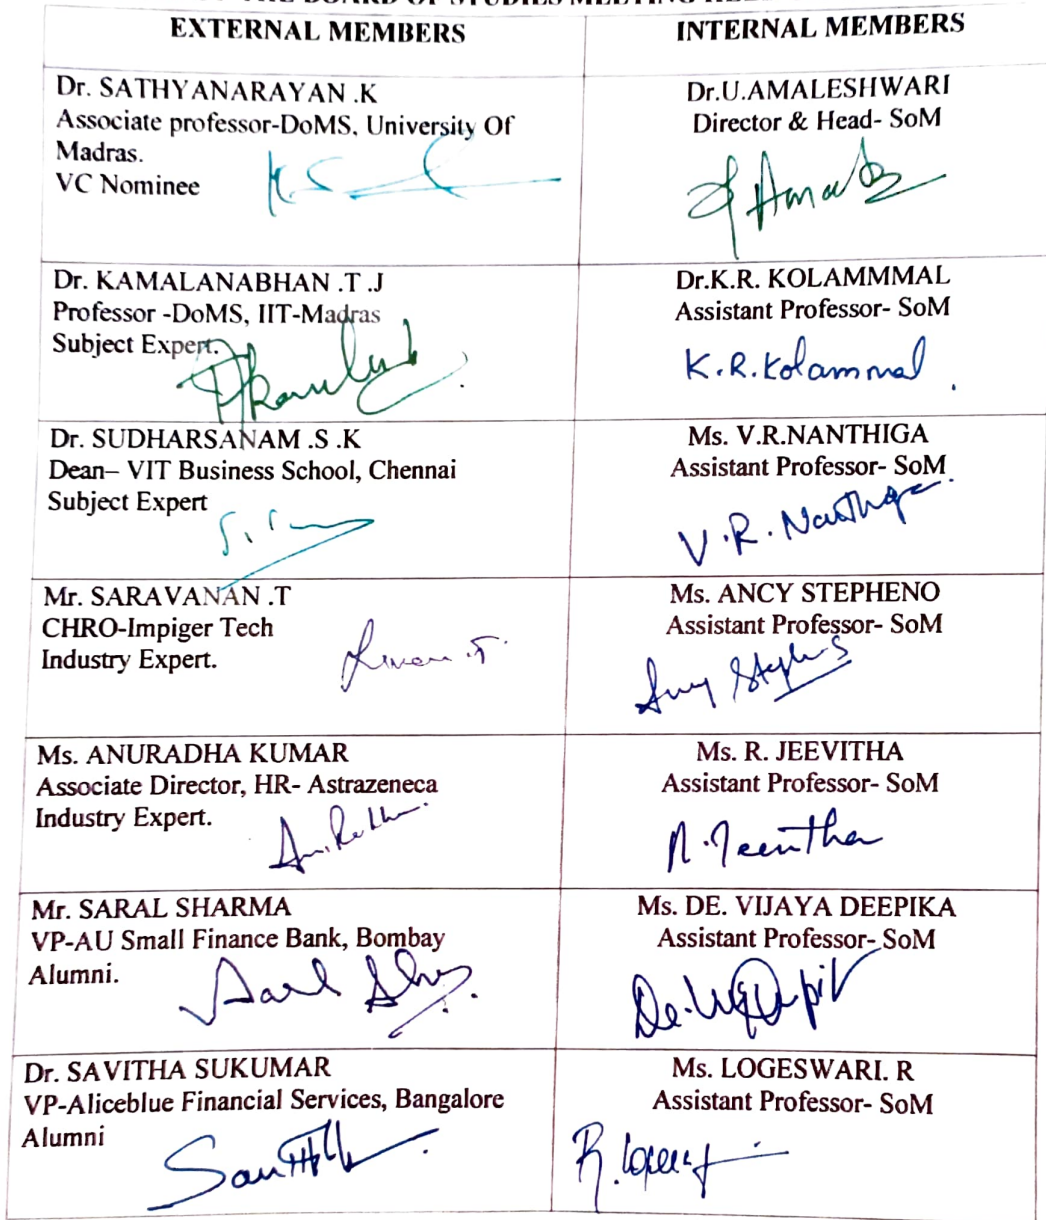 THE BOARD OF STUDIES MEETING
EXTERNAL MEMBERS
INTERNAL MEMBERS
Dr. SATHYANARAYAN .K
Associate professor-DoMS, University Of
Madras.
VC Nominee
Dr.U.AMALESHWARI
Director & Head- SoM
Dr. KAMALANABHAN .T .J
Professor -DoMS, IIT-Madras
Subject Expert.
Dr.K.R. KOLAMMMAL
Assistant Professor- SoM
K.R.Kolammal
Dr. SUDHARSANAM .S .K
Dean– VIT Business School, Chennai
Subject Expert
Ms. V.R.NANTHIGA
Assistant Professor- SoM
V.R.Nanthiga
Mr. SARAVANAN .T
CHRO-Impiger Tech
Industry Expert.
Ms. ANCY STEPHENO
Assistant Professor- SoM
Ms. ANURADHA KUMAR
Associate Director, HR- Astrazeneca
Industry Expert.
Ms. R. JEEVITHA
Assistant Professor- SoM
Mr. SARAL SHARMA
VP-AU Small Finance Bank, Bombay
Alumni.
Ms. DE. VIJAYA DEEPIKA
Assistant Professor- SoM
Dr. SAVITHA SUKUMAR
VP-Aliceblue Financial Services, Bangalore
Alumni
Ms. LOGESWARI. R
Assistant Professor- SoM